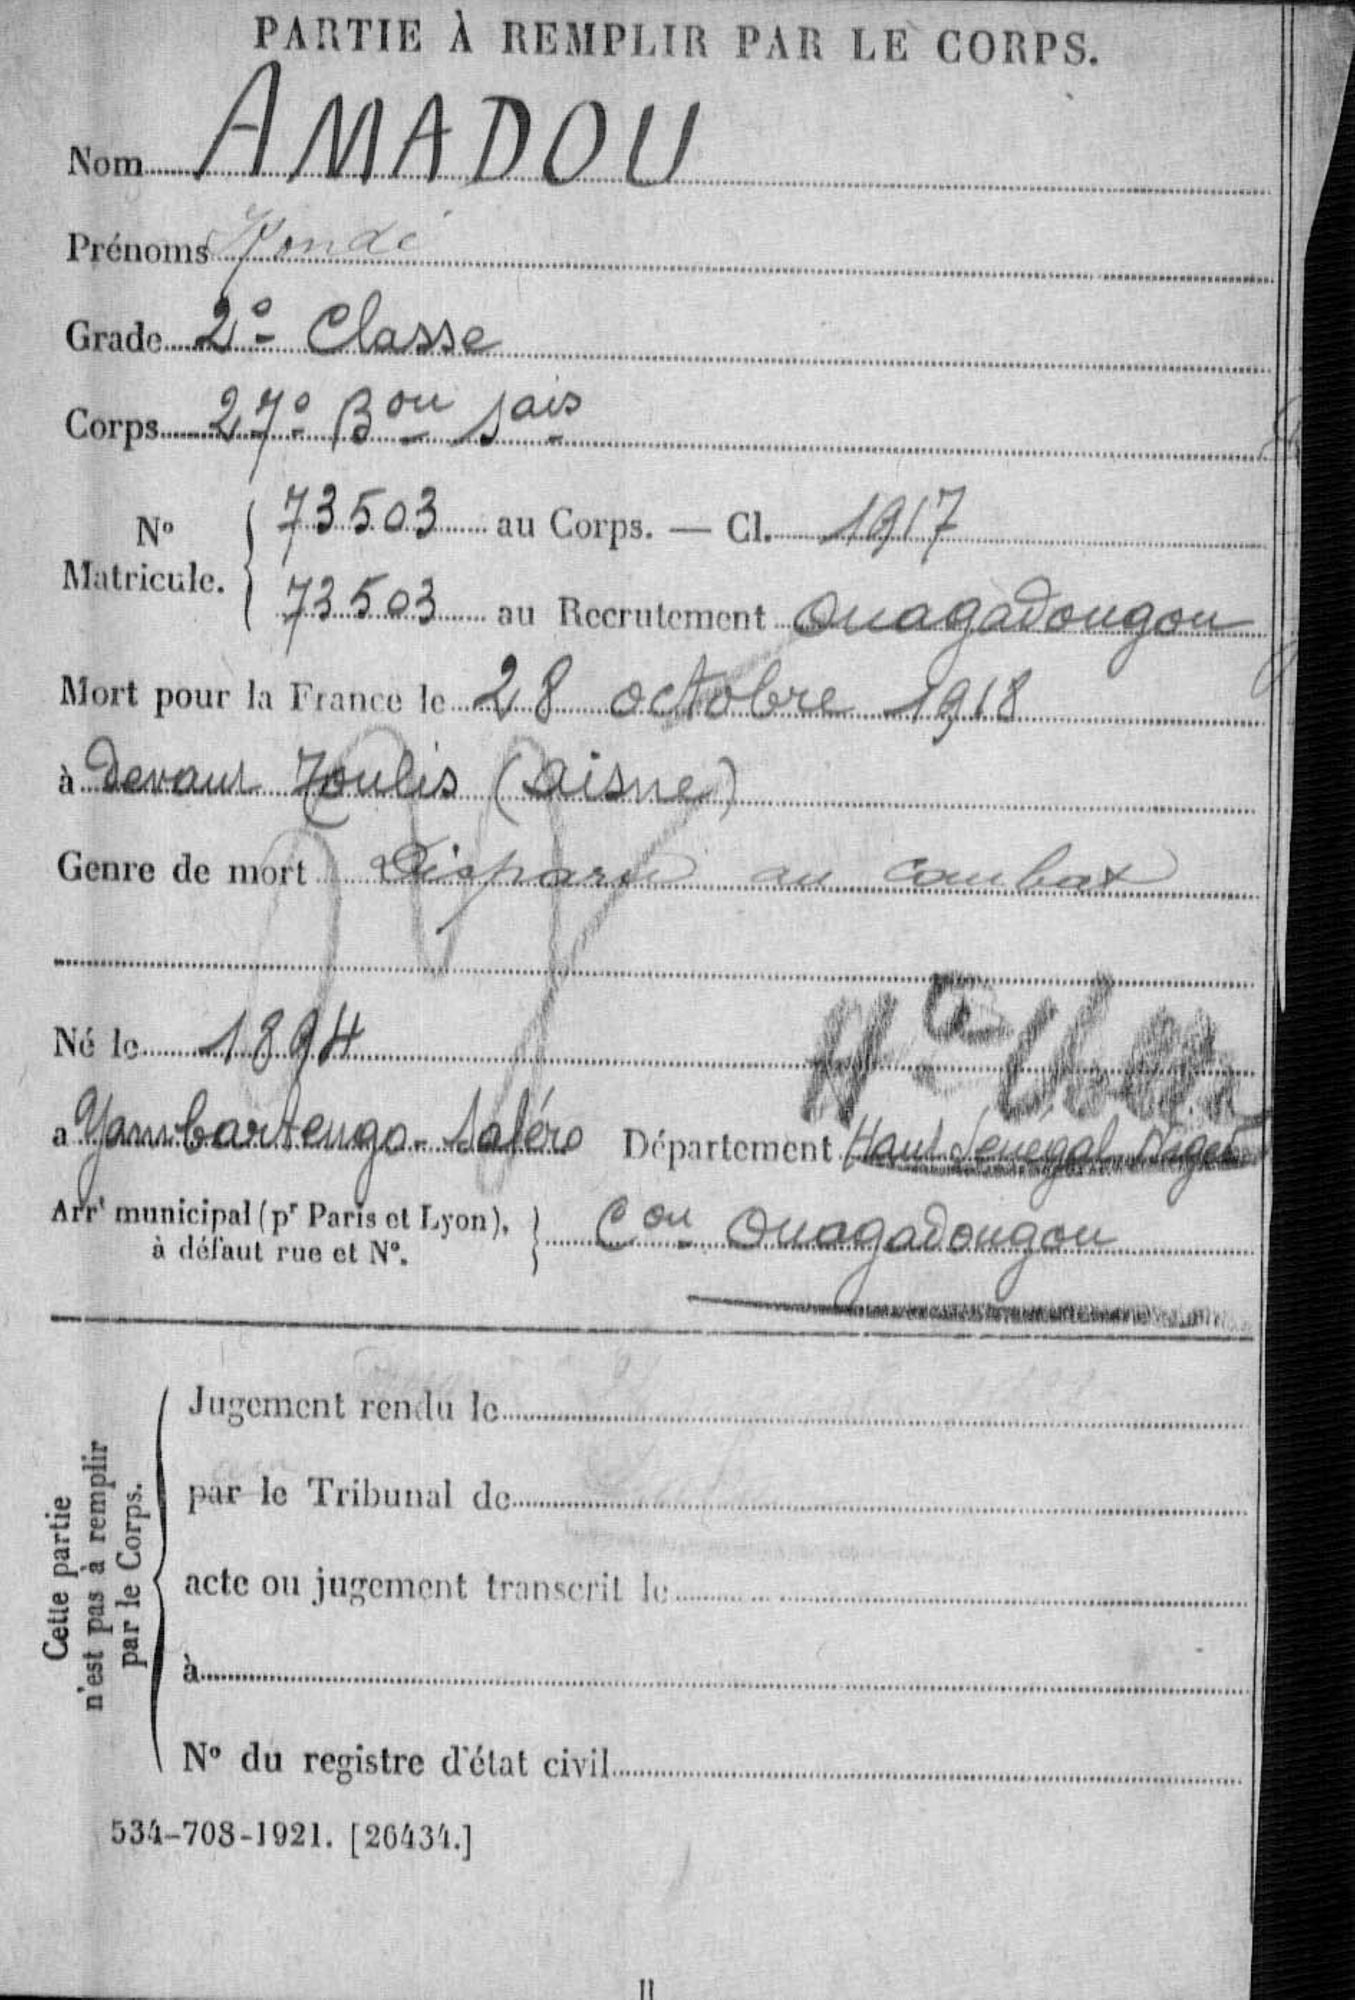 PARTIE À REMPLIR PAR LE CORPS.
Nom AMADOU
Prénoms Kondé
Grade 2e Classe
Corps 27e Bon Sais
No Matricule. 73503 au Corps. — Cl. 1917
73503 au Recrutement Ouagadougou
Mort pour la France le 28 octobre 1918
à devant Toulis (Aisne)
Genre de mort Disparu au combat
Né le 1894
Hte Volta
a Département Haut Sénégal Niger
Arrt municipal (pr Paris et Lyon), à défaut rue et No. Con Ouagadougou
Cette partie n'est pas à remplir par le Corps.
Jugement rendu le
par le Tribunal de
acte ou jugement transcrit le
à
No du registre d'état civil
534-708-1921. [26434.]